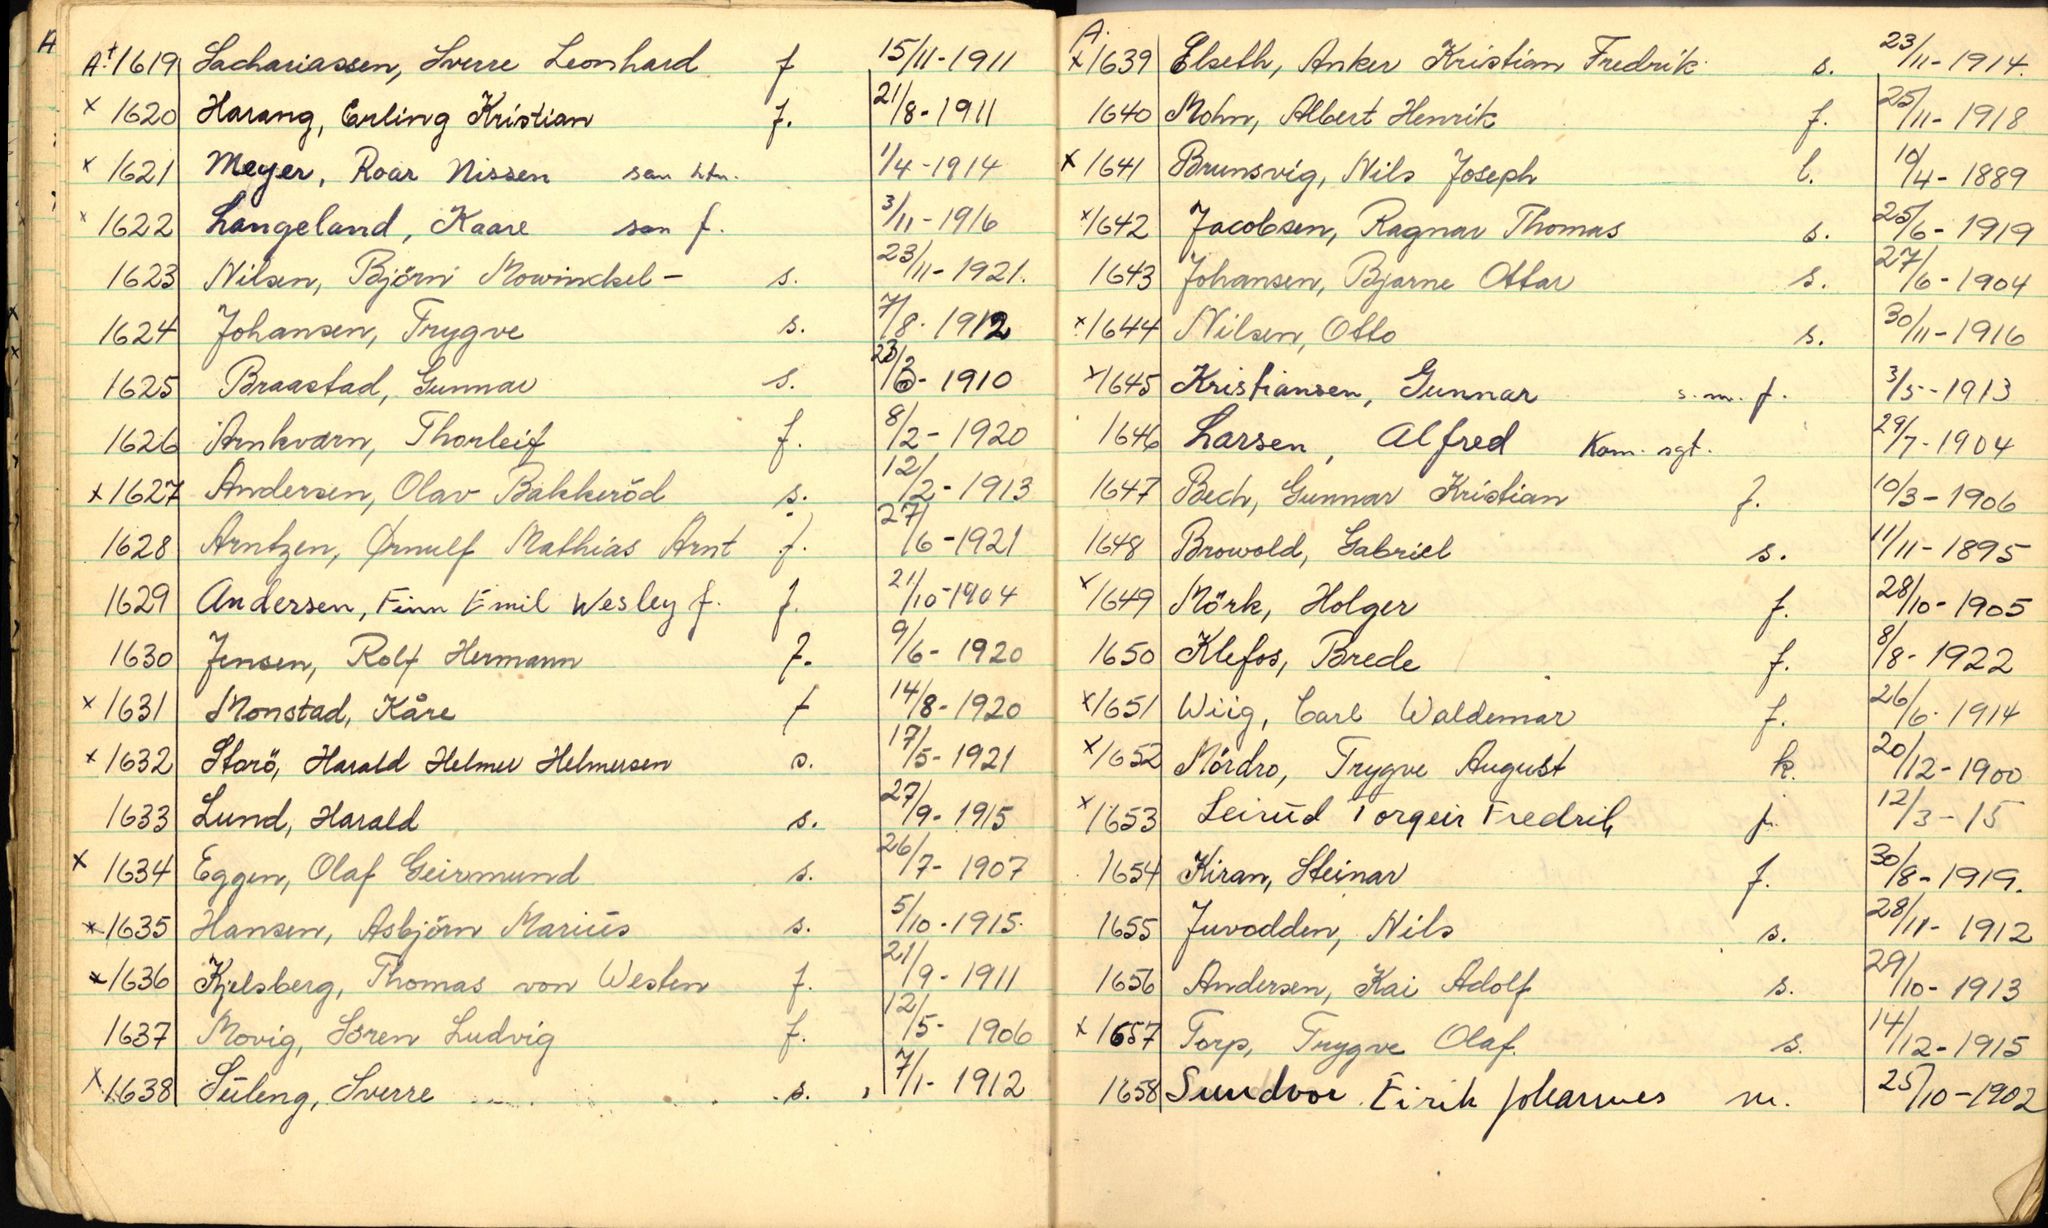 A
A. x 1619 Sachariassen, Sverre Leonhard f 15/11-1911
x 1620 Harang, Erling Kristian f. 21/8-1911
x 1621 Meyer, Roar Nissen san 1/4-1914
x 1622 Langeland, Kaare san f. 3/11-1916
1623 Nilsen, Björn Mowinckel- s. 23/11-1921.
1624 Johansen, Trygve s. 7/8-1912
1625 Braastad, Gunnar s. 1910
1626 Arnkværn, Thorleif f. 8/2-1920
x 1627 Andersen, Olav Bakkeröd s. 12/2-1913
1628 Arntzen, Ørnulf Mathias Arnt f. 27/6-1921
1629 Andersen, Finn Emil Wesley f. f. 21/10-1904
1630 Jensen, Rolf Hermann f. 9/6-1920
x 1631 Monstad, Kåre f 14/8-1920
x 1632 Storö, Harald Helmer Helmersen s. 17/5-1921
1633 Lund, Harald s. 27/9-1915
x 1634 Eggen, Olaf Geirmund s. 26/7-1907
x 1635 Hansen, Asbjörn Marius s. 5/10-1915.
x 1636 Kjelsberg, Thomas von Westen f. 21/9-1911
1637 Movig, Sören Ludvig f. 12/5-1906
x 1638 Süleng, Sverre s. 7/1-1912
A.
x 1639 Elseth, Anker Kristian Fredrik s. 23/11-1914.
1640 Mohn, Albert Henrik f. 25/11-1918
x 1641 Brunsvig, Nils Joseph l. 10/4-1889
x 1642 Jacobsen, Ragnar Thomas s. 25/6-1919
1643 Johansen, Bjarne Ottar s. 27/6-1904
x 1644 Nilsen, Otto s. 30/11-1916
x 1645 Kristiansen, Gunnar s.m. f. 3/5-1913
1646 Larsen, Alfred Kom. sgt. 29/7-1904
1647 Bech, Gunnar Kristian f. 10/3-1906
1648 Browold, Gabriel s. 11/11-1895
x 1649 Mörk, Holger f. 28/10-1905
1650 Klefos, Brede f. 8/8-1922
x 1651 Wiig, Carl Waldemar f. 26/6-1914
x 1652 Mördro, Trygve August k. 20/12-1900
x 1653 Leirud Torgeir Fredrik f. 12/3-15
1654 Kiran, Steinar f. 30/8-1919.
1655 Juvodden, Nils s. 28/11-1912
1656 Andersen, Kai Adolf s. 29/10-1913
x 1657 Torp, Trygve Olaf. s. 14/12-1915
1658 Sundvor Eirik Johannes m. 25/10-1902